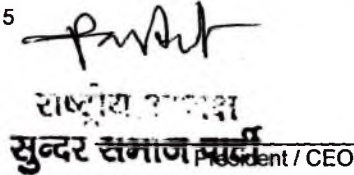 5
राष्ट्रीय अध्यक्ष
सुन्दर समाज पार्टी
President / CEO